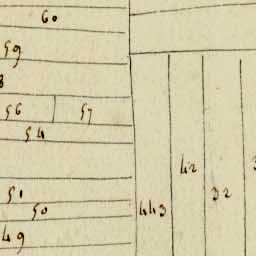 60
59
8
56 57
54
42
51
32
50
443
49